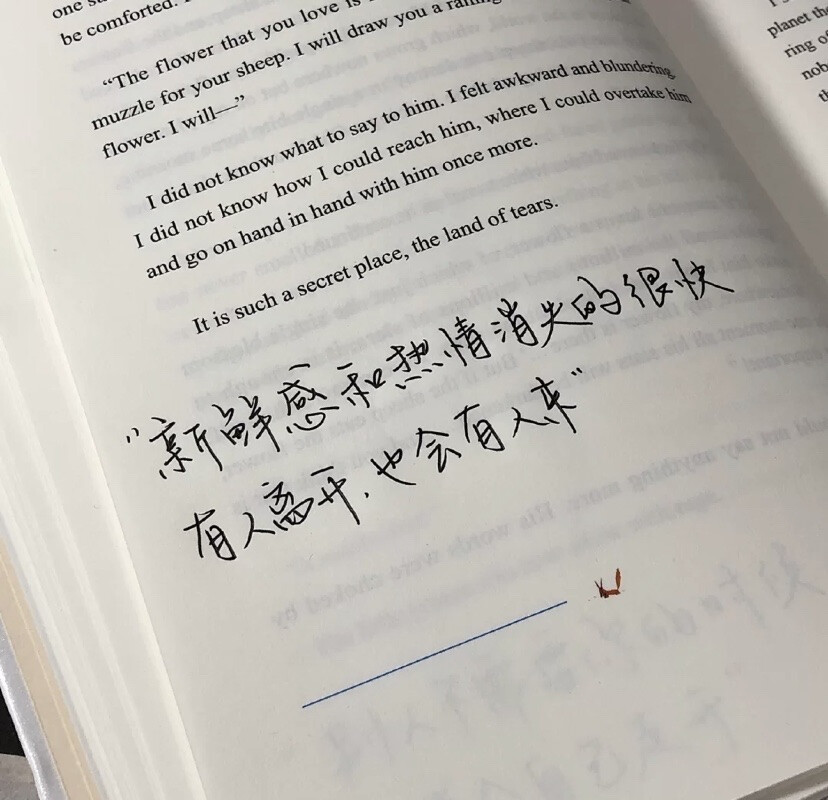 one s
be comforted.
“The flower that you love is
muzzle for your sheep. I will draw you a railing
flower. I will—”
I did not know what to say to him. I felt awkward and blundering.
I did not know how I could reach him, where I could overtake him
and go on hand in hand with him once more.
It is such a secret place, the land of tears.
“新鲜感和热情消失的很快
有人离开,也会有人来”
planet th
ring of
nob
th